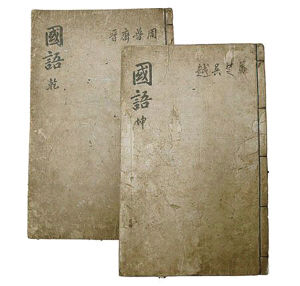 國語
乾
周魯齊晉
國語
坤
鄭楚吳越